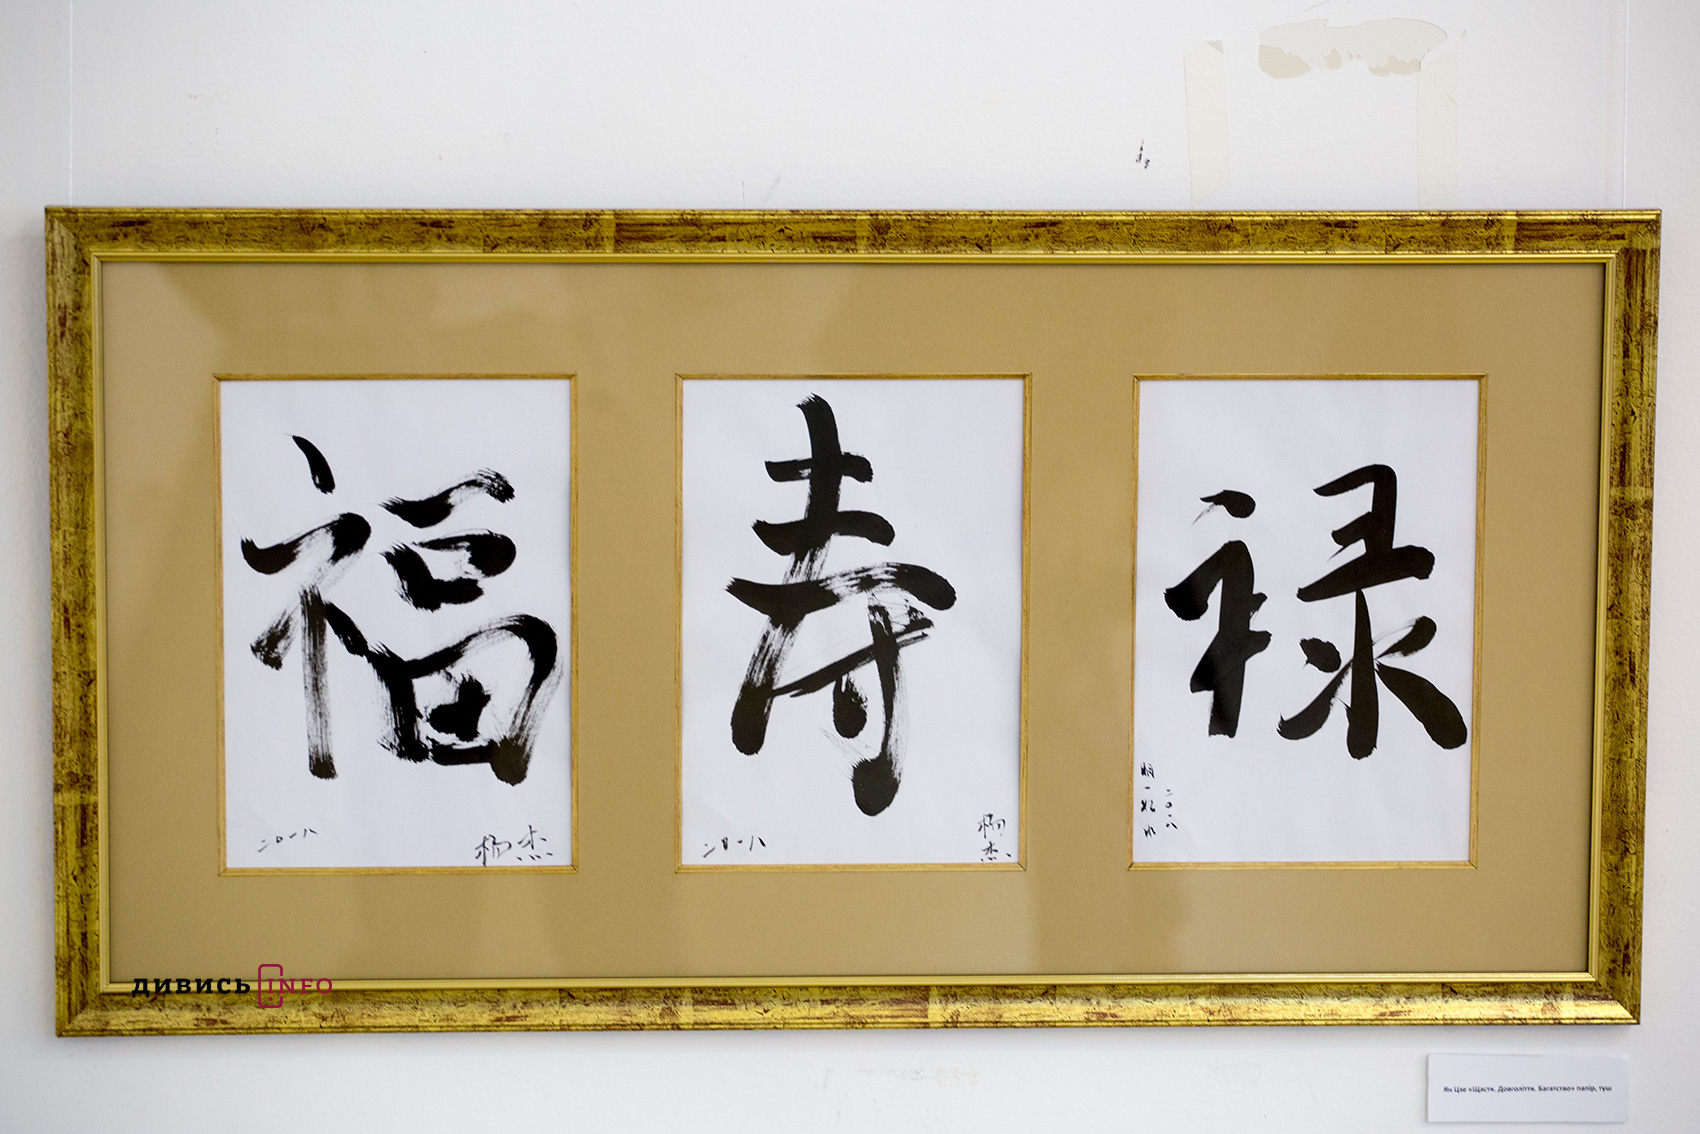 福
寿
禄
二〇一八
杨杰
二〇一八
杨杰
二〇一八
ДИВИСЬ INFO
Ян Цзе «Щастя. Довголіття. Багатство» папір, туш